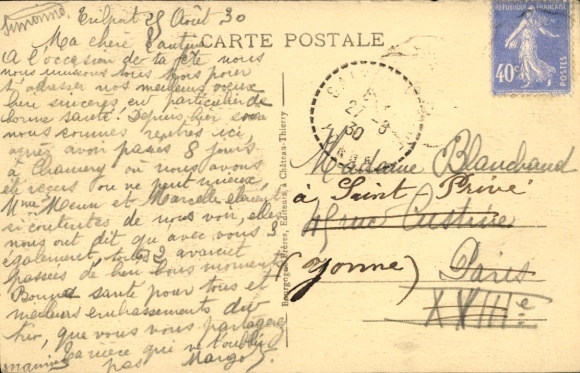 Simonne
CARTE POSTALE
REPUBLIQUE FRANÇAISE
40c
POSTES
Août 30
Ma chère Tantine
A l'occasion de ta fête nous
nous unissons tous trois pour
t'adresser nos meilleurs vœux
bien sincères en particulier de
bonne santé. Depuis hier
nous sommes rentrés ici
après avoir passé 8 jours
à Chauny où nous avons
été reçus on ne peut mieux,
Mme et Marcelle étaient
si contentes de nous voir, elles
nous ont dit qu'avec vous
également, toutes 2 avaient
passées de bon moments
Bonne santé pour tous et
meilleurs embrassements du
trio, que vous vous partagerez
Ta nièce qui ne t'oublie
pas Margot
27-8
30
Bourgogne Frères, Editeurs à Château-Thierry
Madame Blanchard
à Saint Privé
45 rue Custine
(Yonne)
Paris
XVIIIe